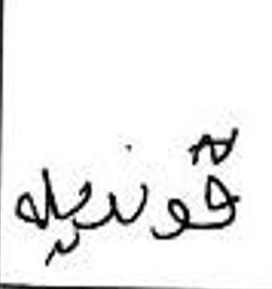 ڤوندیله